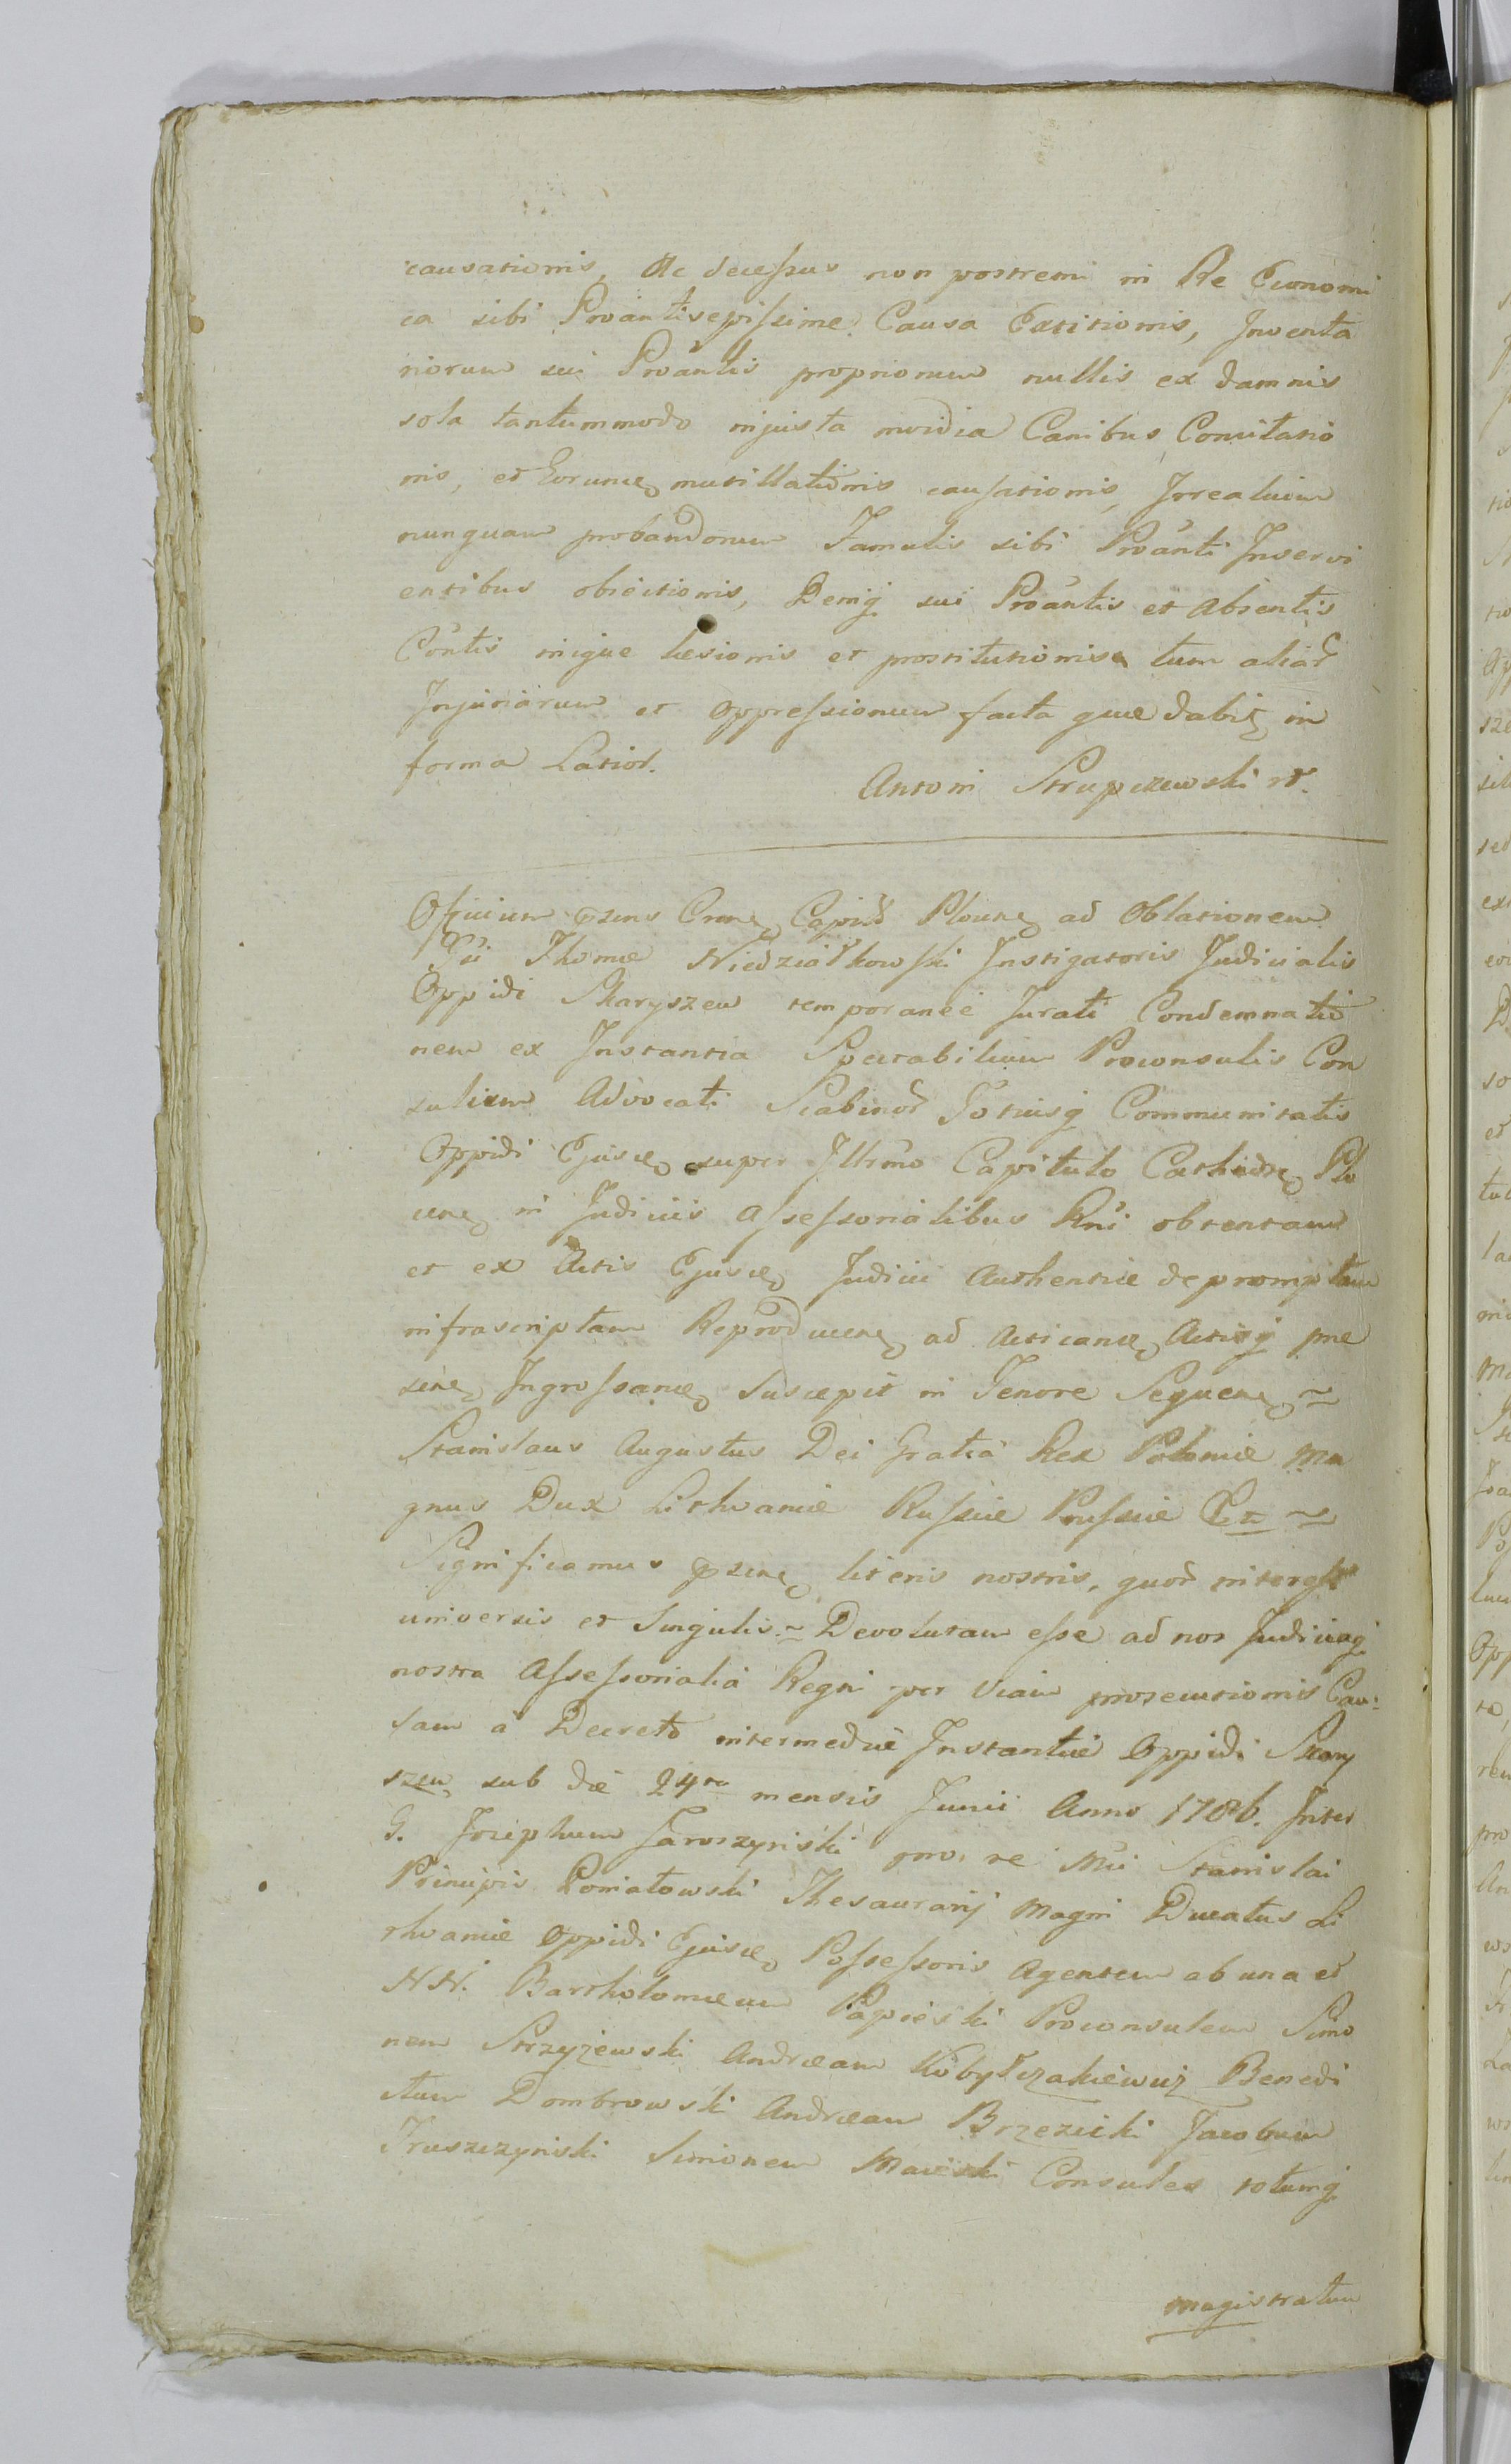 causationis, Ac decessus non postremi in Re Economi
ca sibi Proãnti sepissime Causa Extitionis, Inventa
riorum sui Proãntis propriorum nullis ex damnis
sola tantummodo injusta invidia Canibus Concitatio
nis, et Eorund mutillationis causationis, Irrealium
nunquam probandorum Famulis sibi Proãnti Inservi
entibus obiectionis, Deniq sui Proãntis et Absentis
Cõntis inique lesionis et prostitutionis tum aliar
Injuriarum et oppressionum facta que dabit in
forma Latior.
Antoni Strupczewski
Officium præns Capit Plocen ad Oblationem
Thomæ Niedziałkowski Instigatoris Judicialis
Oppidi Skaryszew temporanee Jurati Condemnatio
nem ex Instantia Spectabilium Proconsulis Con
sulum Advocati Scabinor Totiusq Communitatis
Oppidi Ejusd super Illrmo Capitulo Cathedr Plo
cen in Judiciis Assessorialibus Rni obtentam
et ex Actis Ejusd Judicii Authentice depromptam
infrascriptam Reproducen ad Acticand Actisq præ
sen Ingrossand Suscepit in Tenore Sequen ~
Stanislaus Augustus Dei Gratia Rex Poloniæ Ma
gnus Dux Lithvaniæ Russiæ Prussiæ Etc ~
Significamus præsen literis nostris, quor interest
universis et Singulis ~ Devolutam esse ad nos Judiciaq
nostra Assessorialia Regni per Viam prosecutionis Cau:
sam a Decreto intermediæ Instantiæ Oppidi Skary
szew sub die 24ta mensis Junii Anno 1786. Inter
G. Josephum Jaroszyński pro re Stanislai
Principis Poniatowski Thesaurarij Magni Ducatus Li
thvaniæ Oppidi Ejusd Possessoris Agentem ab una et
NN. Bartholomeum Papieski Proconsulem Simo
nem Strzyżewski Andream Kobyłczakiewicz Benedi
ctum Dombrowski Andream Brzezicki Jacobum
Truszczyński Simonem Maieski Consules totumq
magistratum